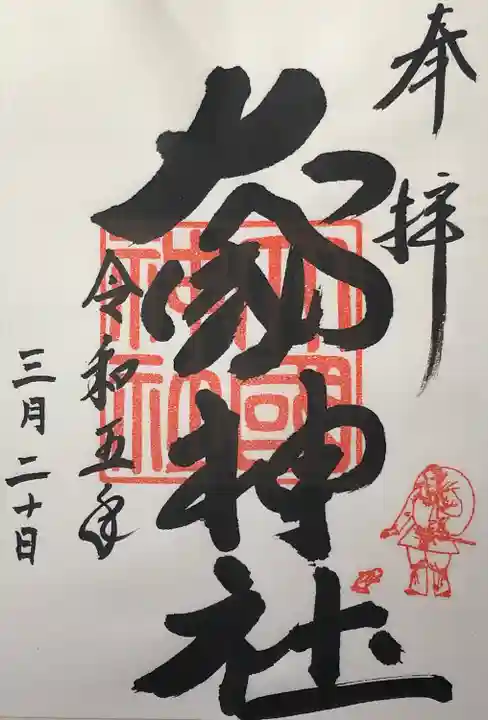 奉拝
大國神社
令和五年
三月二十日